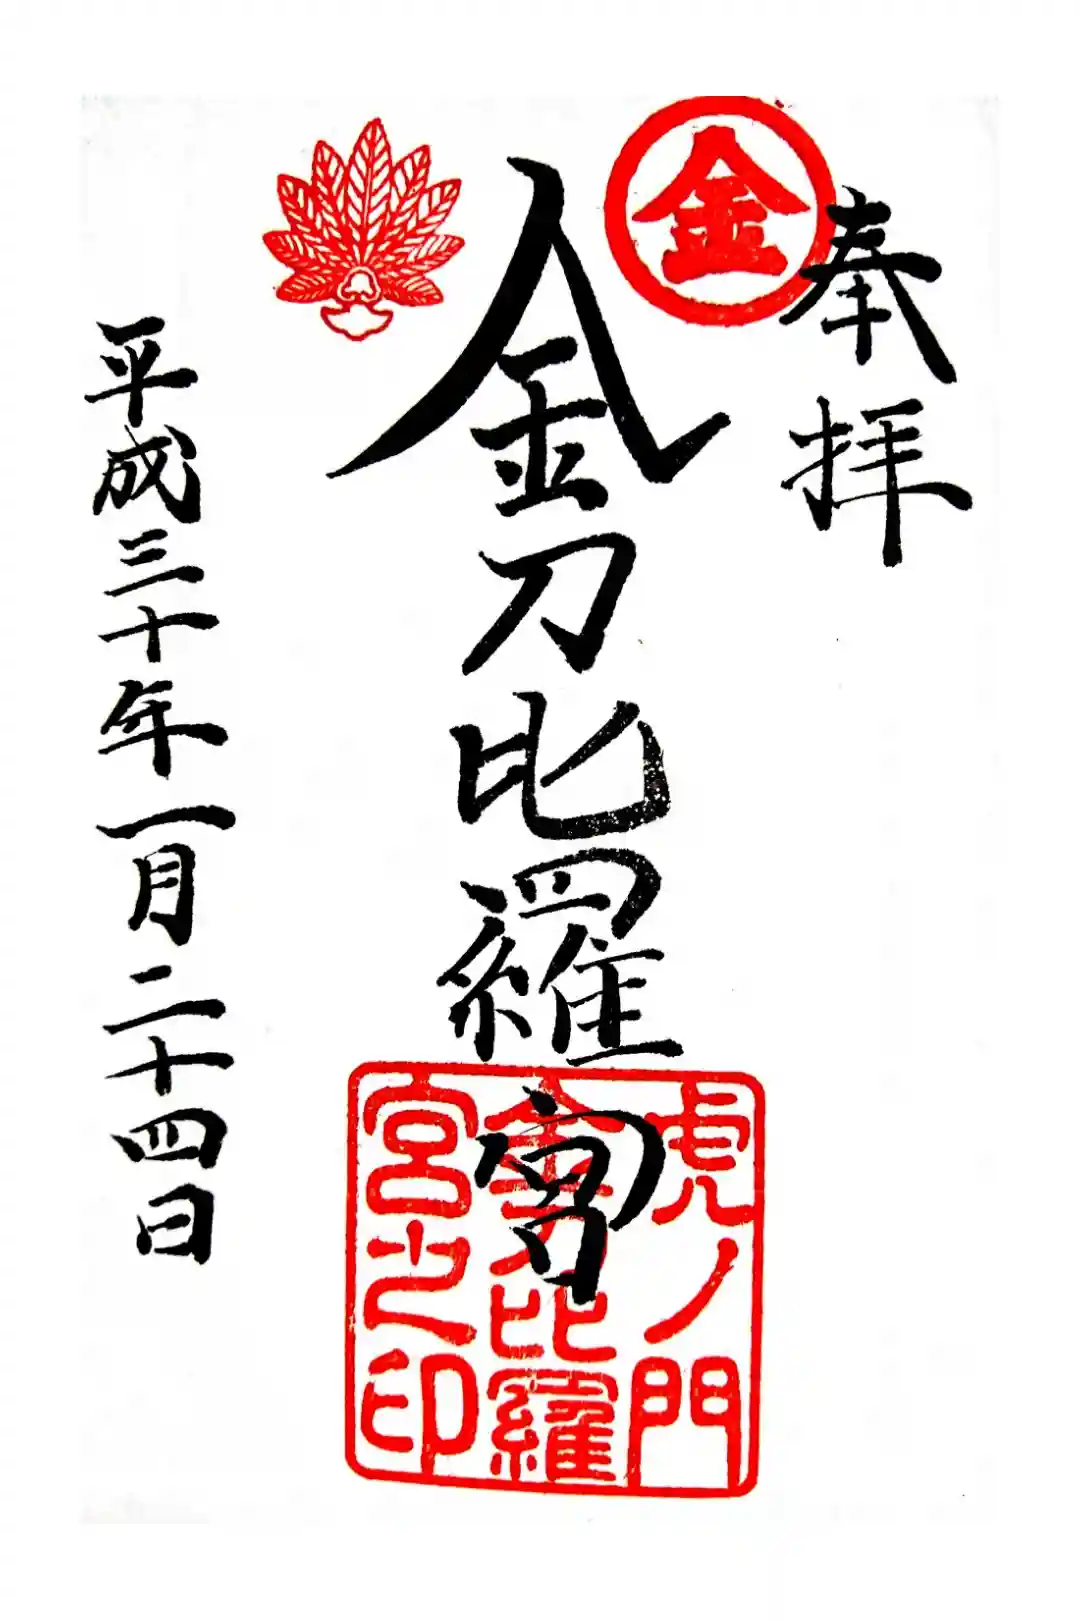 金
奉拝
金刀比羅宮
虎ノ門
金刀比羅
宮之印
平成三十年一月二十四日